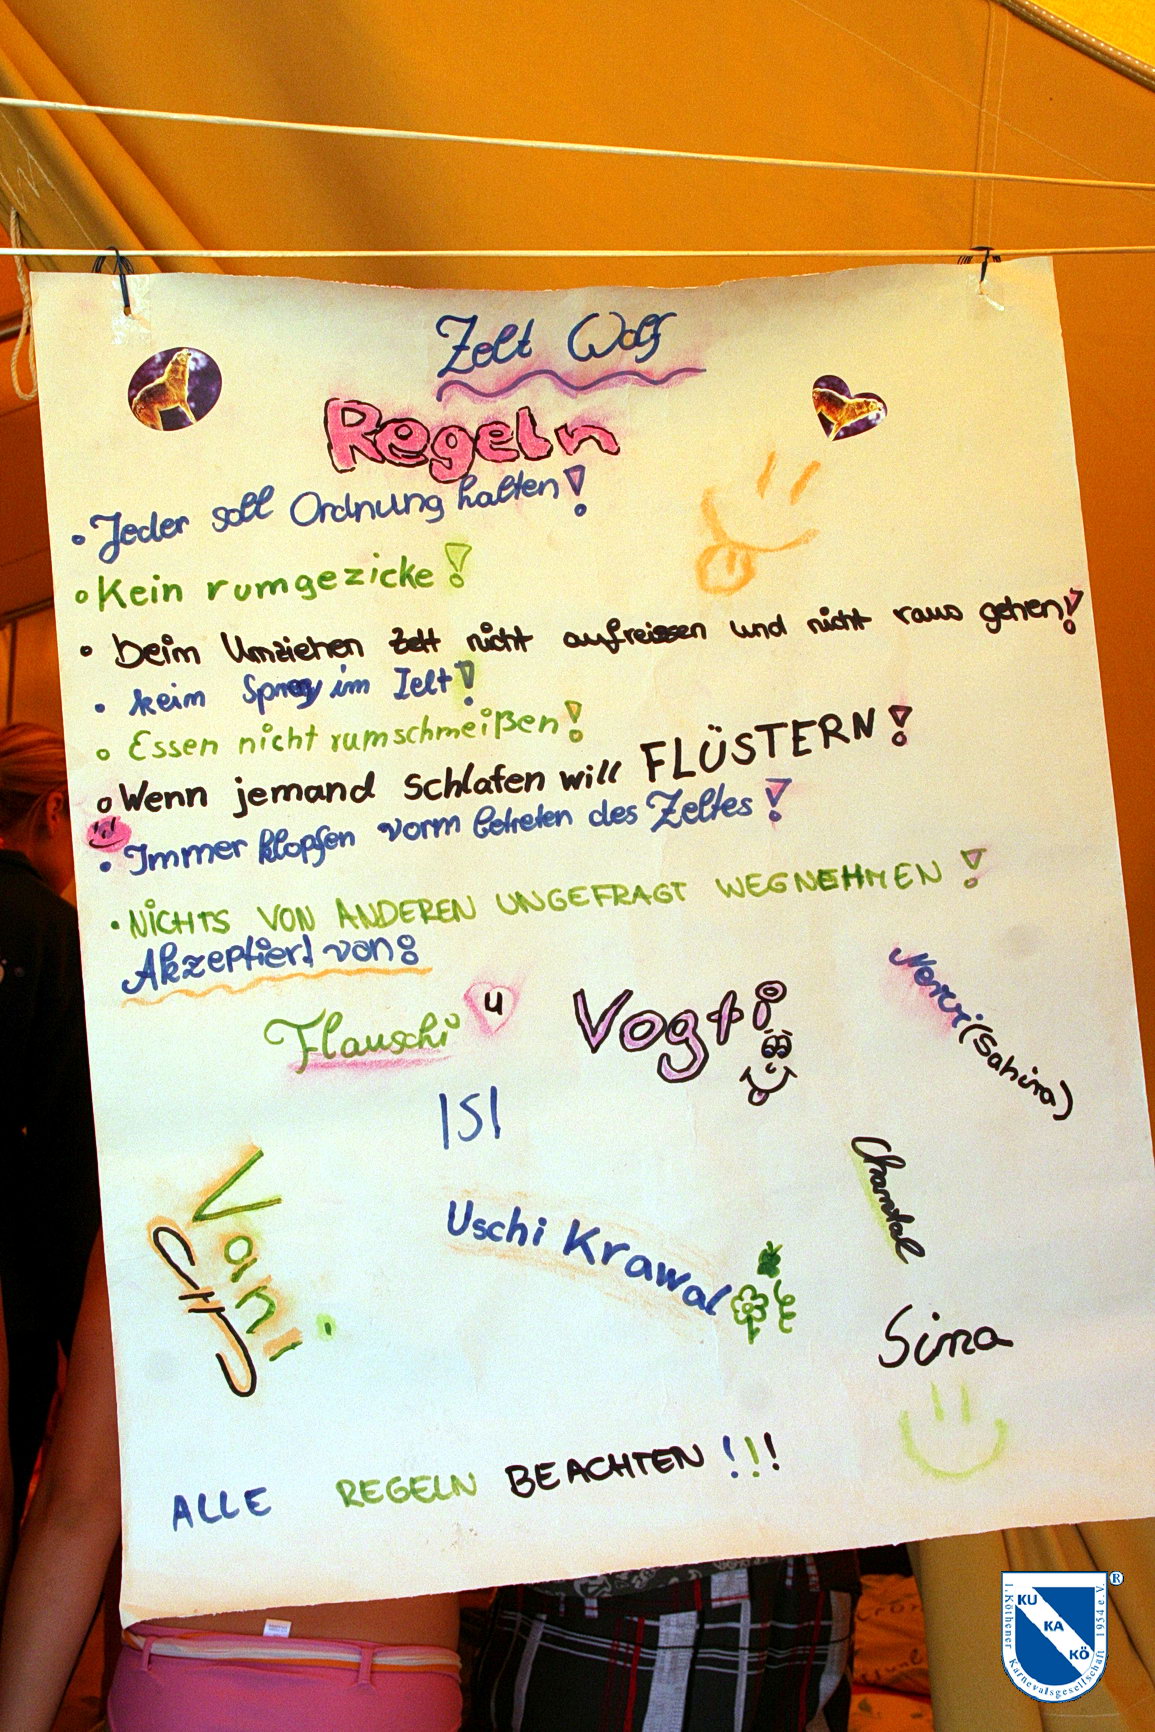 Zelt Wolf
Regeln
• Jeder soll Ordnung halten!
• Kein rumgezicke!
• beim Umziehen Zelt nicht aufreissen und nicht raus gehen!
• kein Spray im Zelt!
• Essen nicht rumschmeißen!
• Wenn jemand schlafen will FLÜSTERN!
• Immer klopfen vorm betreten des Zeltes!
• NICHTS VON ANDEREN UNGEFRAGT WEGNEHMEN!
Akzeptiert von:
Flauschi
Vogti
(Sahira)
ISI
Vani
Uschi Krawal
Chantal
Sina
ALLE REGELN BEACHTEN !!!
KU
KA
KÖ
1. Köthener Karnevalsgesellschaft 1954 e.V.
®